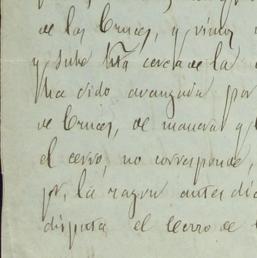 de las Cruces, y vino
y sube hta cerca de la
ha sido avanzada por
de Cruces, de manera q
el cerro, no corresponde,
por la razon antes di
disputa el Cerro de